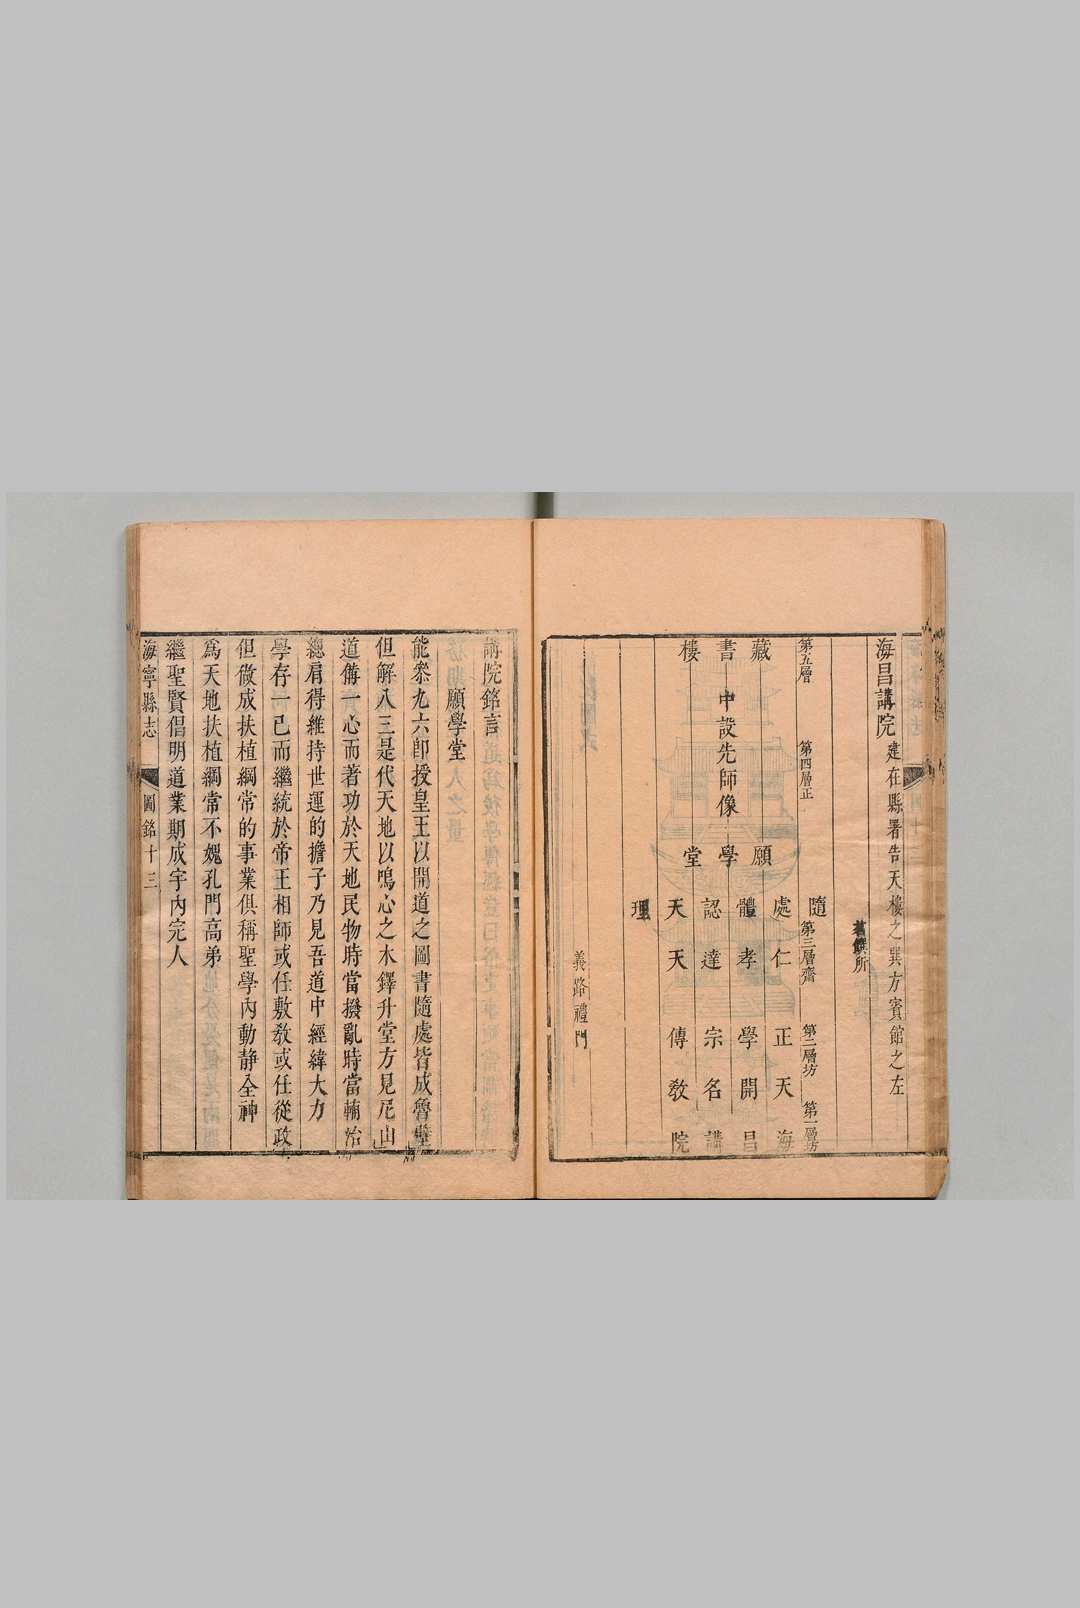 海昌講院 建在縣署告天樓之巽方賓館之左
舊饌所
第五層
藏書樓
第四層正
中設先師像
願學堂
隨處體認天理
第三層齋
仁孝達天
第二層坊
正學宗傳
天開名敎
第一層坊
海昌講院
義路禮門
講院銘言
願學堂
能叅九六卽授皇王以開道之圖書隨處皆成魯壁
但解八三是代天地以鳴心之木鐸升堂方見尼山
道備一心而著功於天地民物時當撥亂時當輔治
總肩得維持世運的擔子乃見吾道中經緯大力
學存一己而繼統於帝王相師或任敷敎或任從政
但做成扶植綱常的事業俱稱聖學內動靜全神
為天地扶植綱常不媿孔門高弟
繼聖賢倡明道業期成宇內完人
海寧縣志 圖銘 十三